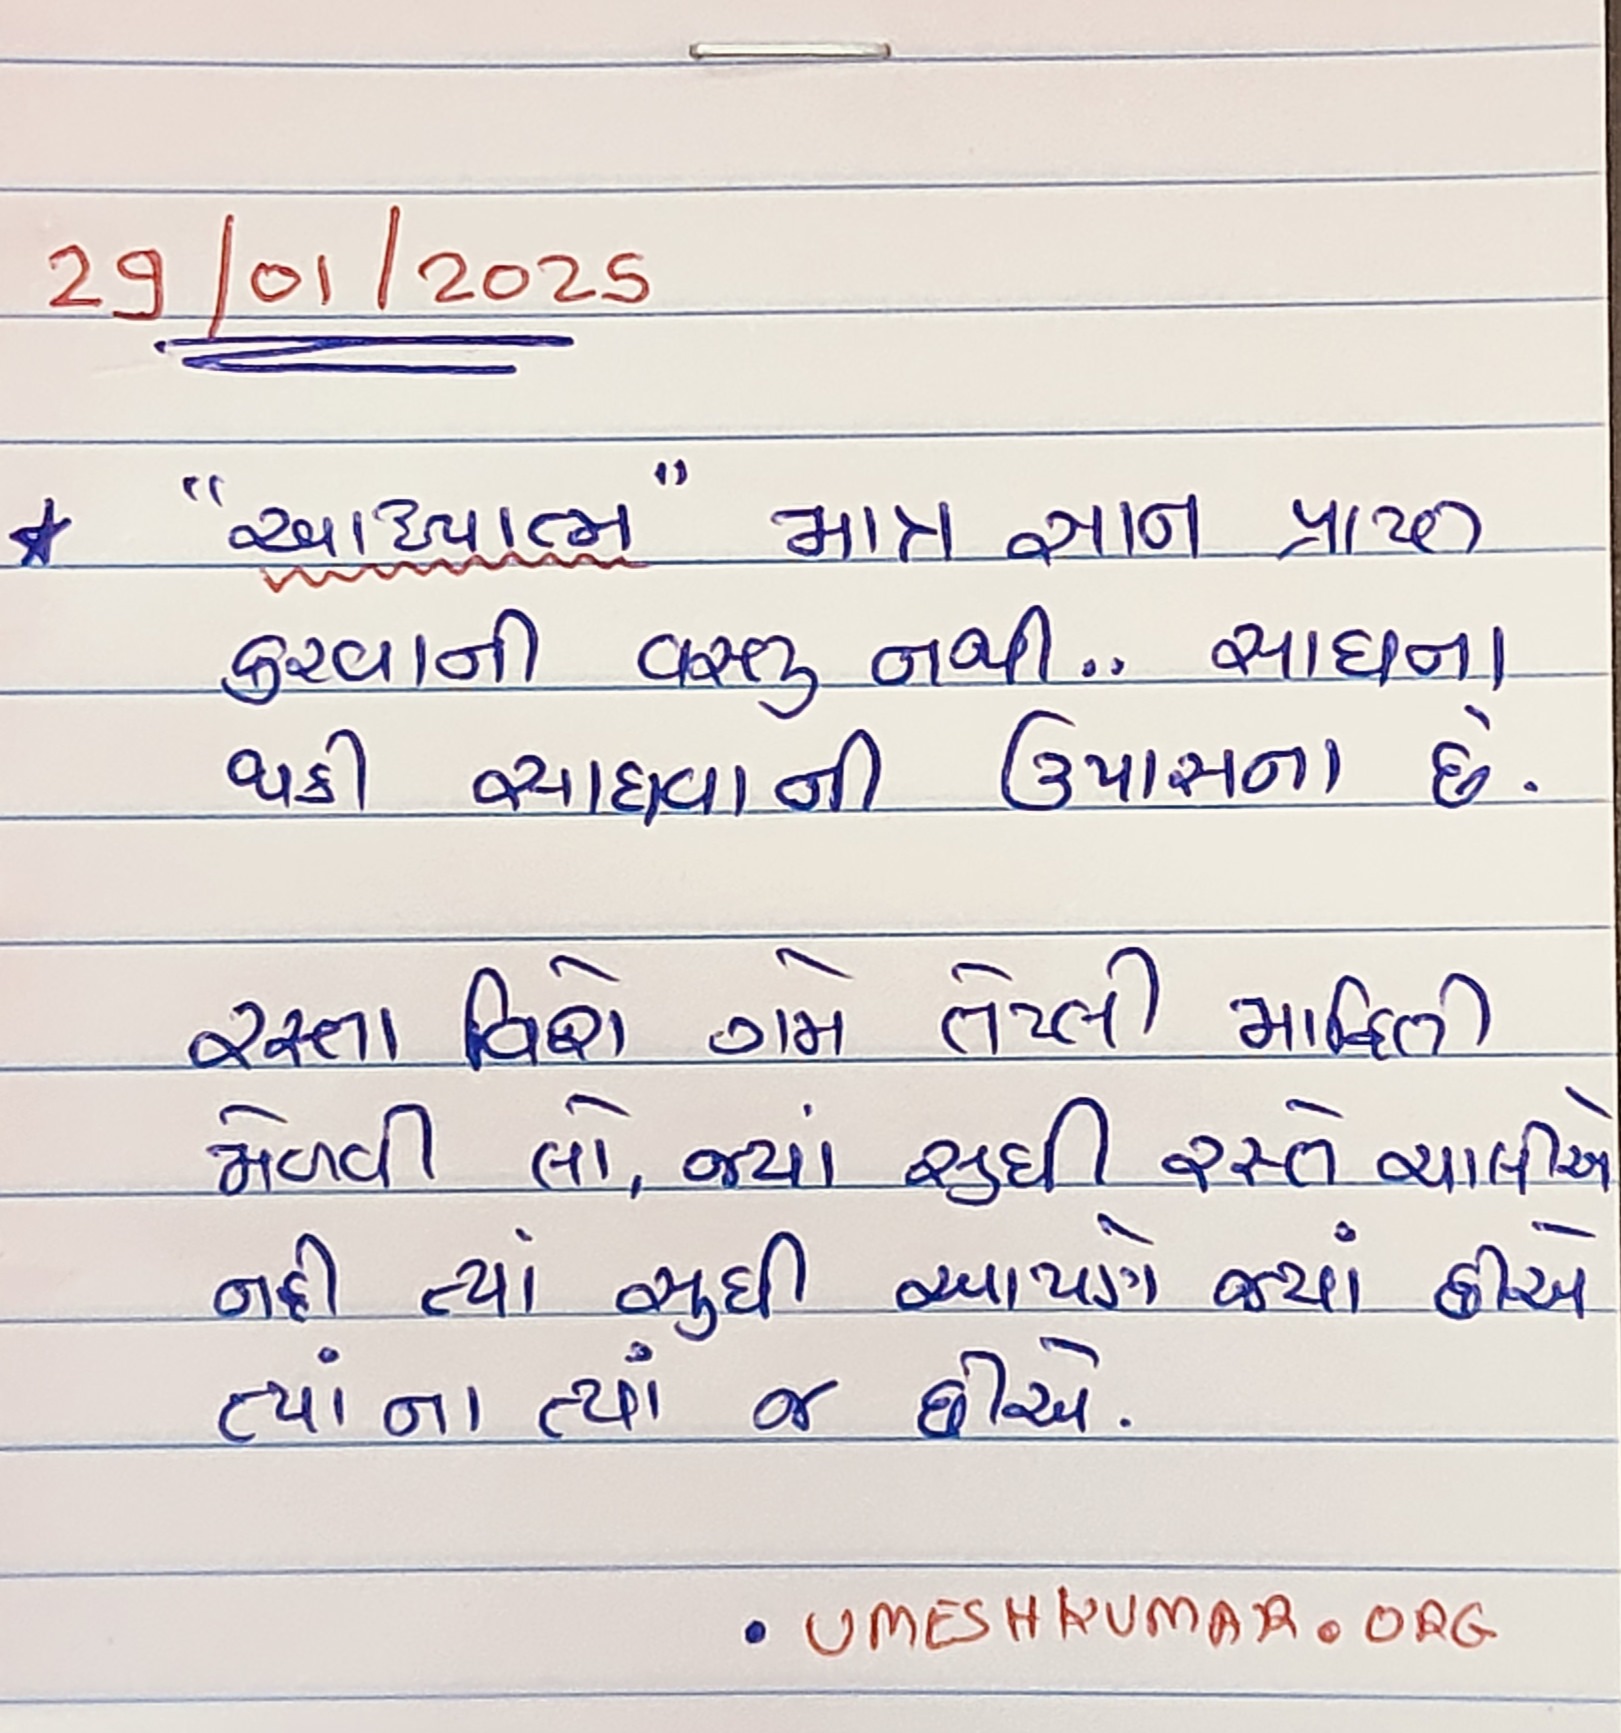 29/01/2025
★ "આધ્યાત્મ" માત્ર જ્ઞાન પ્રાપ્ત
કરવાની વસ્તુ નથી.. સાધના
થકી સાધવાની ઉપાસના છે.
રસ્તા વિશે ગમે તેટલી માહિતી
મેળવી લો, જ્યાં સુધી રસ્તે ચાલીએ
નહી ત્યાં સુધી આપણે જ્યાં છીએ
ત્યાં ના ત્યાં જ છીએ.
• UMESHKUMAR.ORG